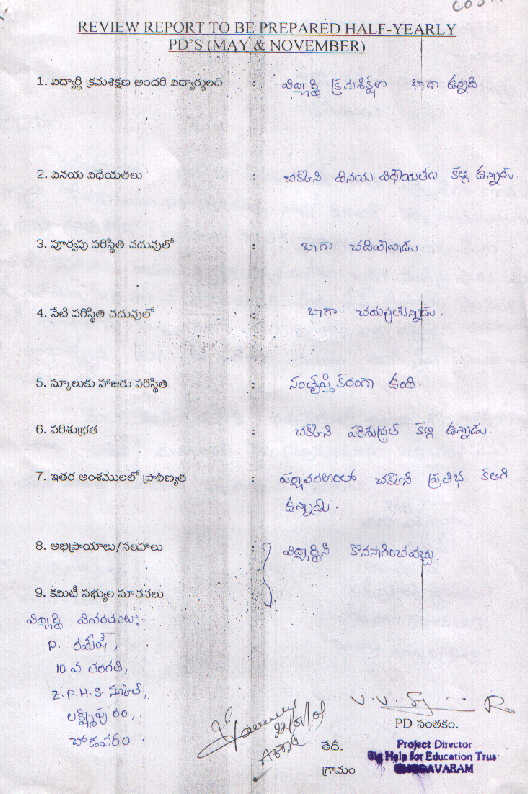 REVIEW REPORT TO BE PREPARED HALF-YEARLY
PD'S (MAY & NOVEMBER)
1. విద్యార్థి క్రమశిక్షణ అందరి విద్యార్థులలో : విద్యార్థి క్రమశిక్షణ బాగా ఉన్నది
2. వినయ విధేయతలు : చక్కని వినయ విధేయతలు కల్గి ఉన్నాడు.
3. పూర్వపు పరిస్థితి చదువులో : బాగా చదివేవాడు.
4. నేటి పరిస్థితి చదువులో : బాగా చదువుతున్నాడు.
5. స్కూలుకు హాజరు పరిస్థితి : సంతృప్తికరంగా ఉంది.
6. పరిశుభ్రత : చక్కని పరిశుభ్రత కల్గి ఉన్నాడు.
7. ఇతర అంశములలో ప్రావీణ్యత : చక్కని ప్రతిభ కలిగి
ఉన్నాడు.
8. అభిప్రాయాలు/సలహాలు : విద్యార్థిని కొనసాగించవచ్చు
9. కమిటీ సభ్యుల సూచనలు
విద్యార్థి వివరములు:-
P. రమేష్,
10 వ తరగతి,
Z.P.H.S స్కూల్,
లక్ష్మీపురం,
చోడవరం.
PD సంతకం.
తేది.
Project Director
Big Help for Education Trust
గ్రామం
CHODAVARAM